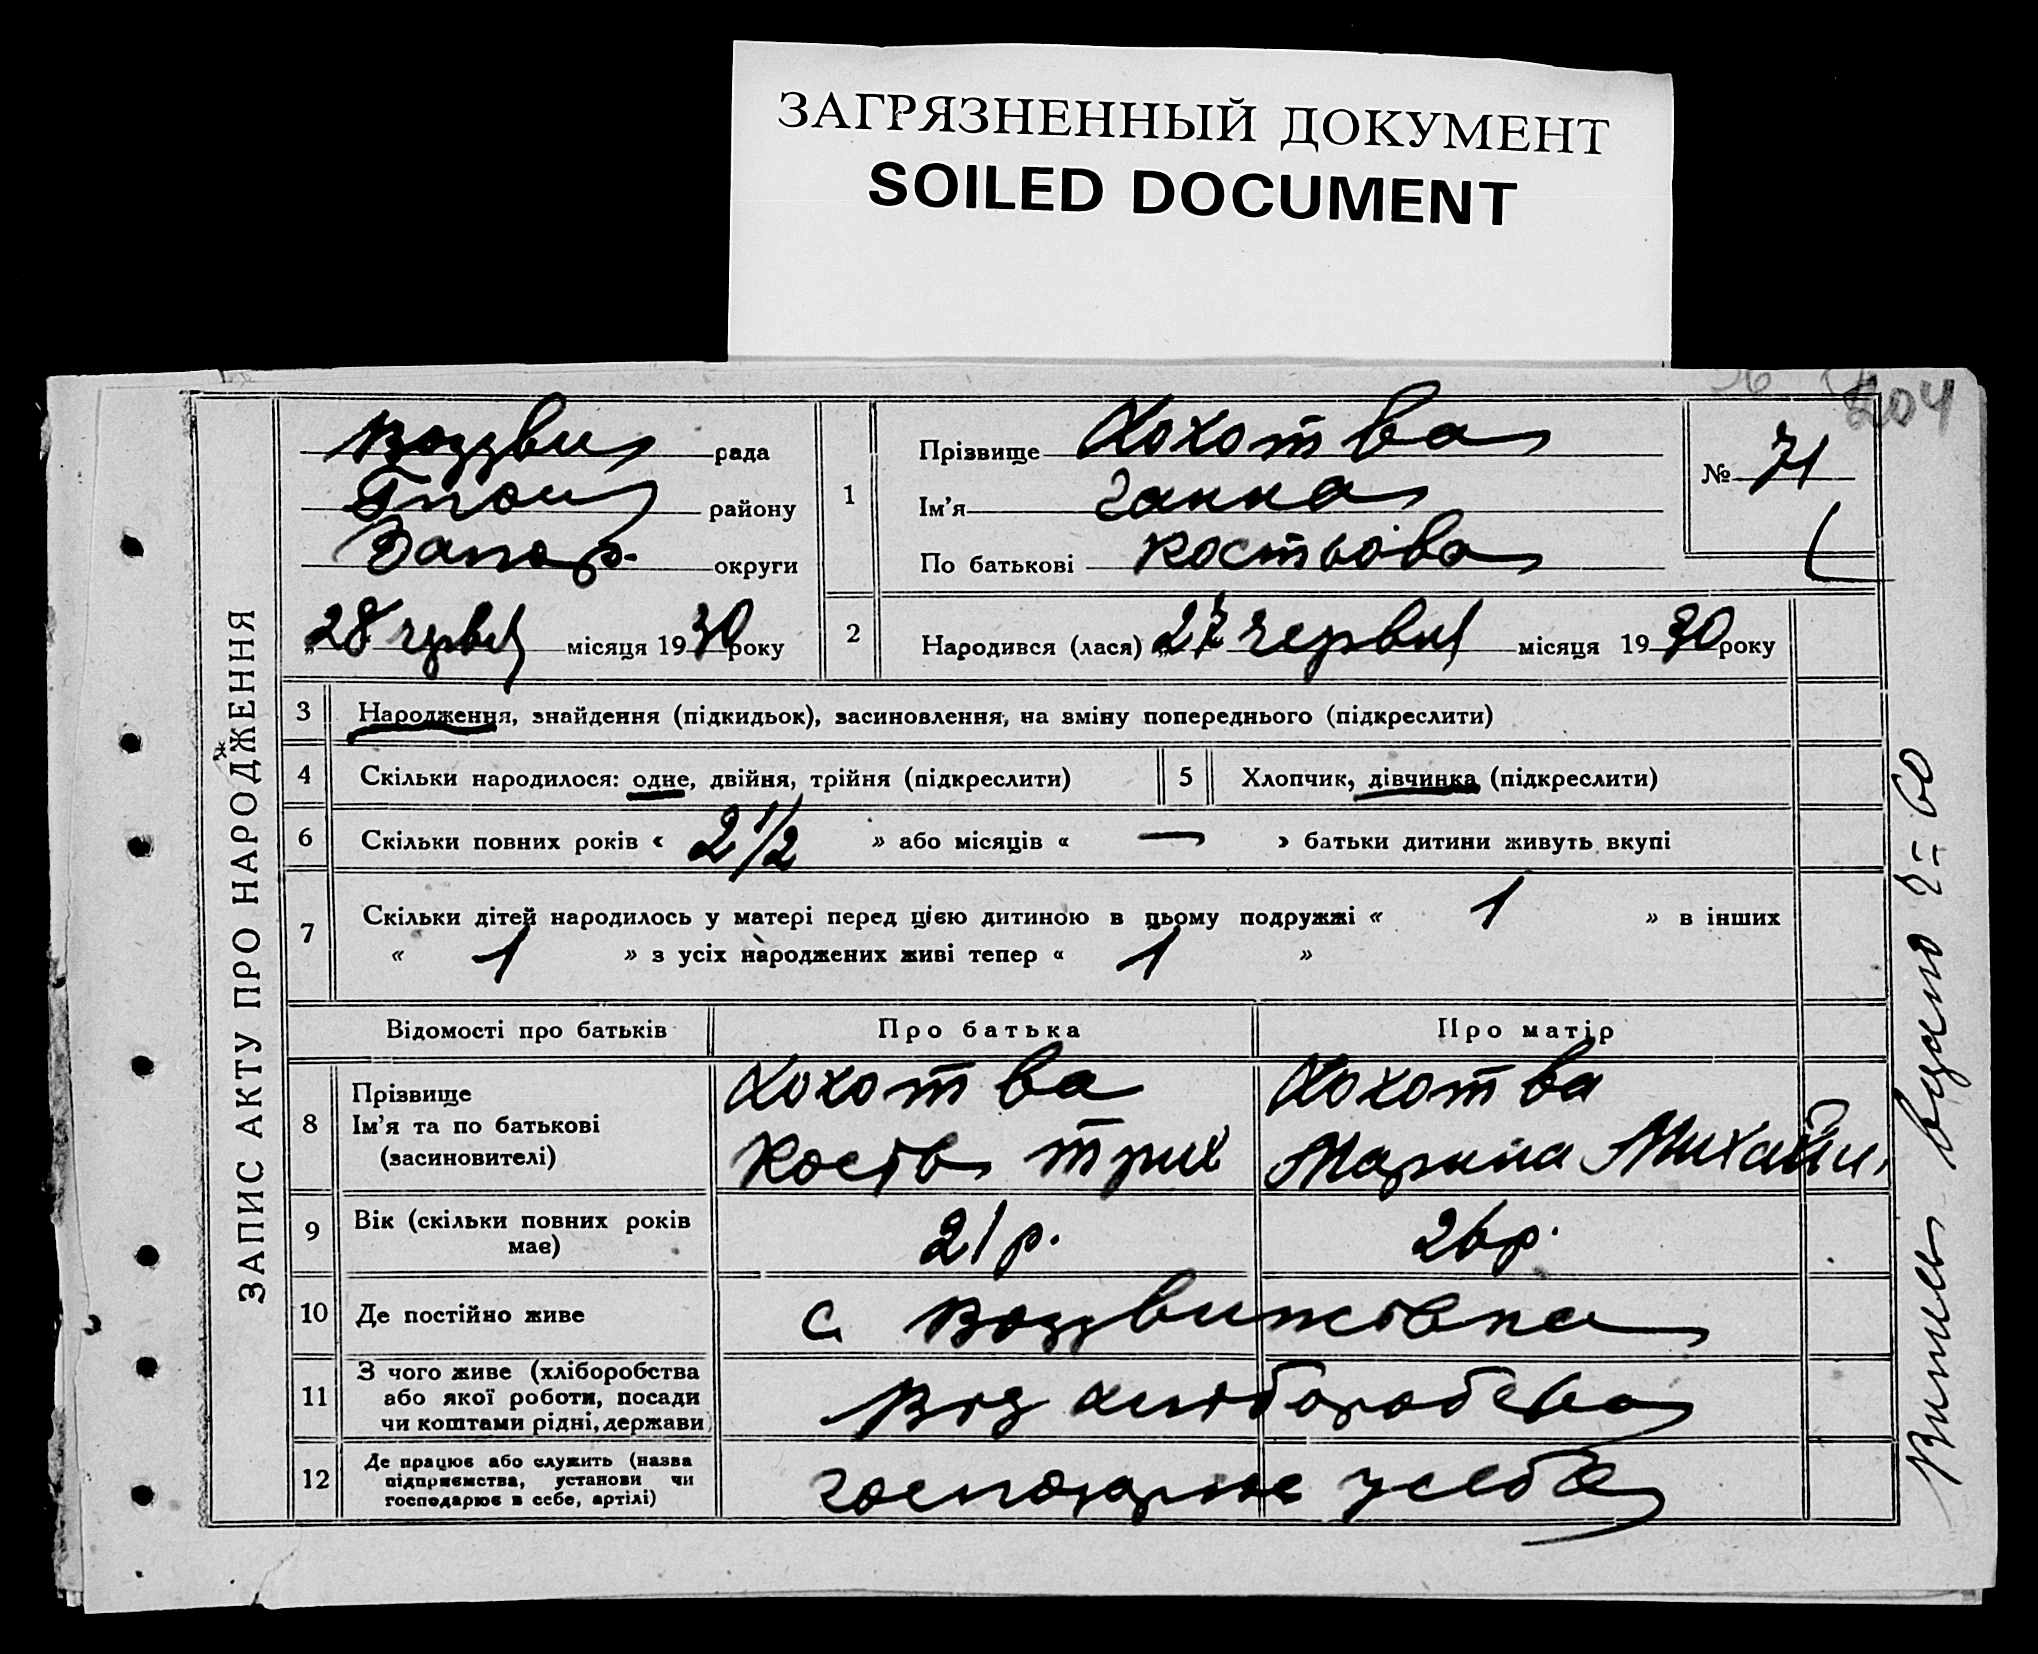 ЗАГРЯЗНЕННЫЙ ДОКУМЕНТ
SOILED DOCUMENT
204
ЗАПИС АКТУ ПРО НАРОДЖЕННЯ
Воздви рада
району
Запор. округи
„28 червня місяця 1930 року
1 Прізвище Хохотва
Ім’я Ганна
По батькові Костьова
№ 71
2 Народився (лася) „27 червня місяця 1930 року
3 Народження, знайдення (підкидьок), засиновлення, на зміну попереднього (підкреслити)
4 Скільки народилося: одне, двійня, трійня (підкреслити)
5 Хлопчик, дівчинка (підкреслити)
6 Скільки повних років « 2 1/2 » або місяців « — » батьки дитини живуть вкупі
7 Скільки дітей народилось у матері перед цією дитиною в цьому подружжі « 1 » в інших
« 1 » з усіх народжених живі тепер « 1 »
Відомості про батьків Про батька Про матір
8 Прізвище
Ім’я та по батькові
(засиновителі)
Хохотва
Кость Трих
Хохотва
Марина Михайл.
9 Вік (скільки повних років
має)
21 р. 26 р.
10 Де постійно живе с Воздвижевка
11 З чого живе (хліборобства
або якої роботи, посади
чи коштами рідні, держави
Від хліборобства
12 Де працює або служить (назва
підприємства, установи чи
господарює в себе, артілі)
господарює у себе
Випись видано 60